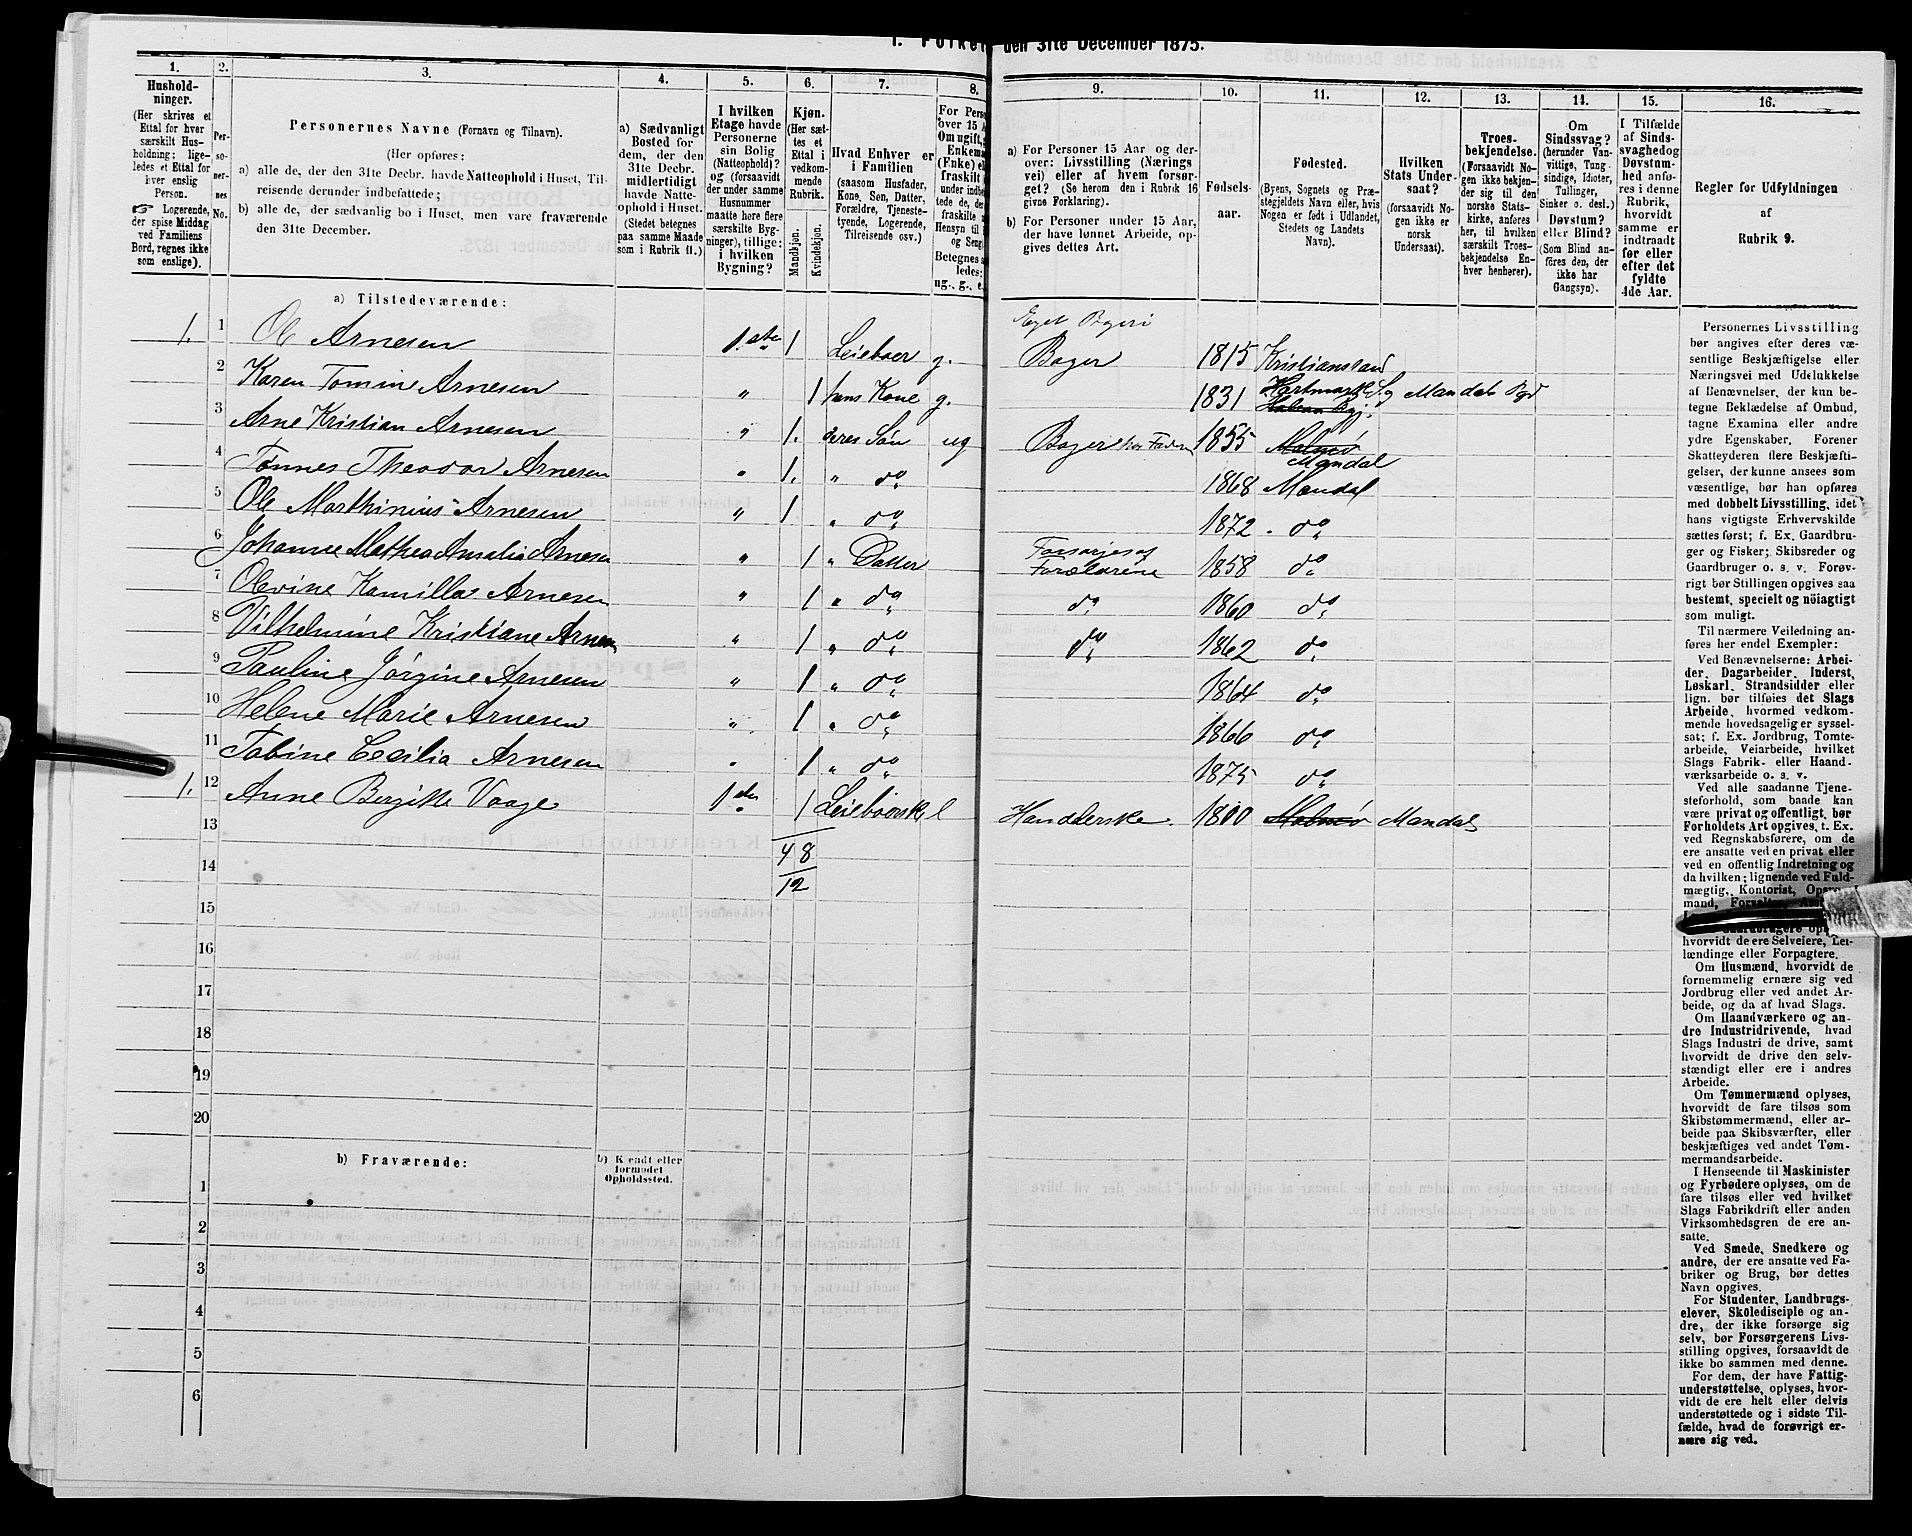 1. Folket den 31te December 1875.
1. 2. 3. 4. 5. 6. 7. 8. 9. 10. 11. 12. 13. 14. 15. 16.
Hushold-
ninger.
(Her skrives et
Ettal for hver
særskilt Hus-
holdning; lige-
ledes et Ettal for
hver enslig
Person.
☞ Logerende,
der spise Middag
ved Familiens
Bord, regnes ikke
som enslige).
Per-
so-
ner-
nes
No.
Personernes Navne (Fornavn og Tilnavn).
(Her opføres:
a) alle de, der den 31te Decbr. havde Natteophold i Huset, Til-
reisende derunder indbefattede;
b) alle de, der sædvanlig bo i Huset, men vare fraværende
den 31te December.
a) Sædvanligt
Bosted for
dem, der den
31te Decbr.
midlertidigt
havde Natte-
ophold i Huset.
(Stedet betegnes
paa samme Maade
som i Rubrik 11.)
I hvilken
Etage havde
Personerne
sin Bolig
(Natteophold)?
og (forsaavidt
der under samme
Husnummer
maatte høre flere
særskilte Byg-
ninger), tillige:
i hvilken
Bygning?
Kjøn.
(Her sæt-
tes et
Ettal i
vedkom-
mende
Rubrik.
Mandkjøn.
Kvindekjøn.
Hvad Enhver er
i Familien
(saasom Husfader,
Kone, Søn, Datter,
Forældre, Tjeneste-
tyende, Logerende,
Tilreisende osv.)
For Pers
over 15 A
Om ugift,
Enkema
(Fnke) el
fraskilt
a) For Personer 15 Aar og der-
over: Livsstilling (Nærings
vei) eller af hvem forsør-
get? (Se herom den i Rubrik 16
givne Forklaring).
b) For Personer under 15 Aar,
der have lønnet Arbeide, op-
gives dettes Art.
Fødsels-
aar.
Fødested.
(Byens, Sognets og Præ-
stegjeldets Navn eller, hvis
Nogen er født i Udlandet,
Stedets og Landets
Navn).
Hvilken
Stats Under-
saat?
(forsaavidt No-
gen ikke er
norsk
Undersaat).
Troes-
bekjendelse.
(Forsaavidt No-
gen ikke bekjen-
der sig til den
norske Stats-
kirke, anføres
her, til hvilken
særskilt Troes-
bekjendelse En-
hver henhører).
Om
Sindssvag?
(herunder Van-
vittige, Tung-
sindige, Idioter,
Tullinger,
Sinker o. desl.)
Døvstum?
eller Blind?
(Som Blind an-
føres den, der
ikke har
Gangsyn).
I Tilfælde
af Sinds-
svaghed og
Døvstum-
hed anfø-
res i denne
Rubrik,
hvorvidt
samme er
indtraadt
før eller
efter det
fyldte
4de Aar.
Regler for Udfyldningen
af
Rubrik 9.
a) Tilstedeværende:
Eget Bageri
1. 1 Ole Arnesen 1.ste 1 Leieboer g. Bager 1815 Kristianssand
2 Karen Tomine Arnesen " 1 hans Kone g. 1831 Hartmark Sg Mandals Pgd
3 Arne Kristian Arnesen " 1. deres Søn ug Bager hos Faderen 1855 Mandal
4 Tønnes Theodor Arnesen " 1. " do 1868 Mandal
5 Ole Marthinius Arnesen " 1 " do 1872 do
6 Johanne Mathea Amalia Arnesen " 1 " Datter Forsørjes af Forældrene 1858 do
7 Olevine Kamilla Arnesen " 1 " do do 1860 do
8 Vilhelmine Kristiane Arnesen " 1 " do do 1862 do
9 Pauline Jørgine Arnesen " 1 " do 1864 do
10 Helene Marie Arnesen " 1 " do 1866 do
11 Tobine Cecilia Arnesen " 1 " do 1875 do
1. 12 Anne Bergitte Vaage 1ste 1 Leieboerske Handlerske 1800 Malmø Mandal
13 4 8
14 12
15
16
17
18
19
20
b) Fraværende:
b) Kjendt eller
formodet
Opholdssted.
1
2
3
4
5
6
Personernes Livsstilling
bør angives efter deres væ-
sentlige Beskjæftigelse eller
Næringsvei med Udelukkelse
af Benævnelser, der kun be-
tegne Beklædelse af Ombud,
tagne Examina eller andre
ydre Egenskaber. Forener
Skatteyderen flere Beskjæfti-
gelser, der kunne ansees som
væsentlige, bør han opføres
med dobbelt Livsstilling, idet
hans vigtigste Erhvervskilde
sættes først; f. Ex. Gaardbru-
ger og Fisker; Skibsreder og
Gaardbruger o. s. v. Forøv-
rigt bør Stillingen opgives saa
bestemt, specielt og nøiagtigt
som muligt.
Til nærmere Veiledning an-
føres her endel Exempler:
Ved Benævnelserne: Arbei-
der, Dagarbeider, Inderst,
Løskarl, Strandsidder eller
lign. bør tilføies det Slags
Arbeide, hvormed vedkom-
mende hovedsagelig er syssel-
sat; f. Ex. Jordbrug, Tomte-
arbeide, Veiarbeide, hvilket
Slags Fabrik- eller Haand-
værksarbeide o. s. v.
Ved alle saadanne Tjene-
steforhold, som baade kan
være privat og offentligt, bør
Forholdets Art opgives, t. Ex.
ved Regnskabsførere, om de
ere ansatte ved en privat eller
ved en offentlig Indretning og
da hvilken; lignende ved Fuld-
mægtig, Kontorist,
hvorvidt de ere Selveiere, Lei-
lændinge eller Forpagtere.
Om Husmænd, hvorvidt de
fornemmelig ernære sig ved
Jordbrug eller ved andet Ar-
beide, og da af hvad Slags.
Om Haandværkere og an-
dre Industridrivende, hvad
Slags Industri de drive, samt
hvorvidt de drive den selv-
stændigt eller ere i andres
Arbeide.
Om Tømmermænd oplyses,
hvorvidt de fare tilsøs som
Skibstømmermænd, eller ar-
beide paa Skibsværfter, eller
beskjæftiges ved andet Tøm-
mermandsarbeide.
I Henseende til Maskinister
og Fyrbødere oplyses, om de
fare tilsøs eller ved hvilket
Slags Fabrikdrift eller anden
Virksomhedsgren de ere an-
satte.
Ved Smede, Snedkere og
andre, der ere ansatte ved Fa-
briker og Brug, bør dettes
Navn opgives.
For Studenter, Landbrugs-
elever, Skoledisciple og an-
dre, der ikke forsørge sig
selv, bør Forsørgerens Livs-
stilling opgives, forsaavidt de
ikke bo sammen med denne.
For dem, der have Fattig-
understøttelse, oplyses, hvor-
vidt de ere helt eller delvis
understøttede og i sidste Til-
fælde, hvad de forøvrigt er-
nære sig ved.